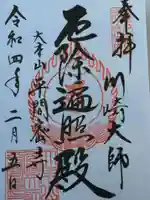 奉拝
川崎大師
厄除遍照殿
大本山平間寺
令和四年二月五日